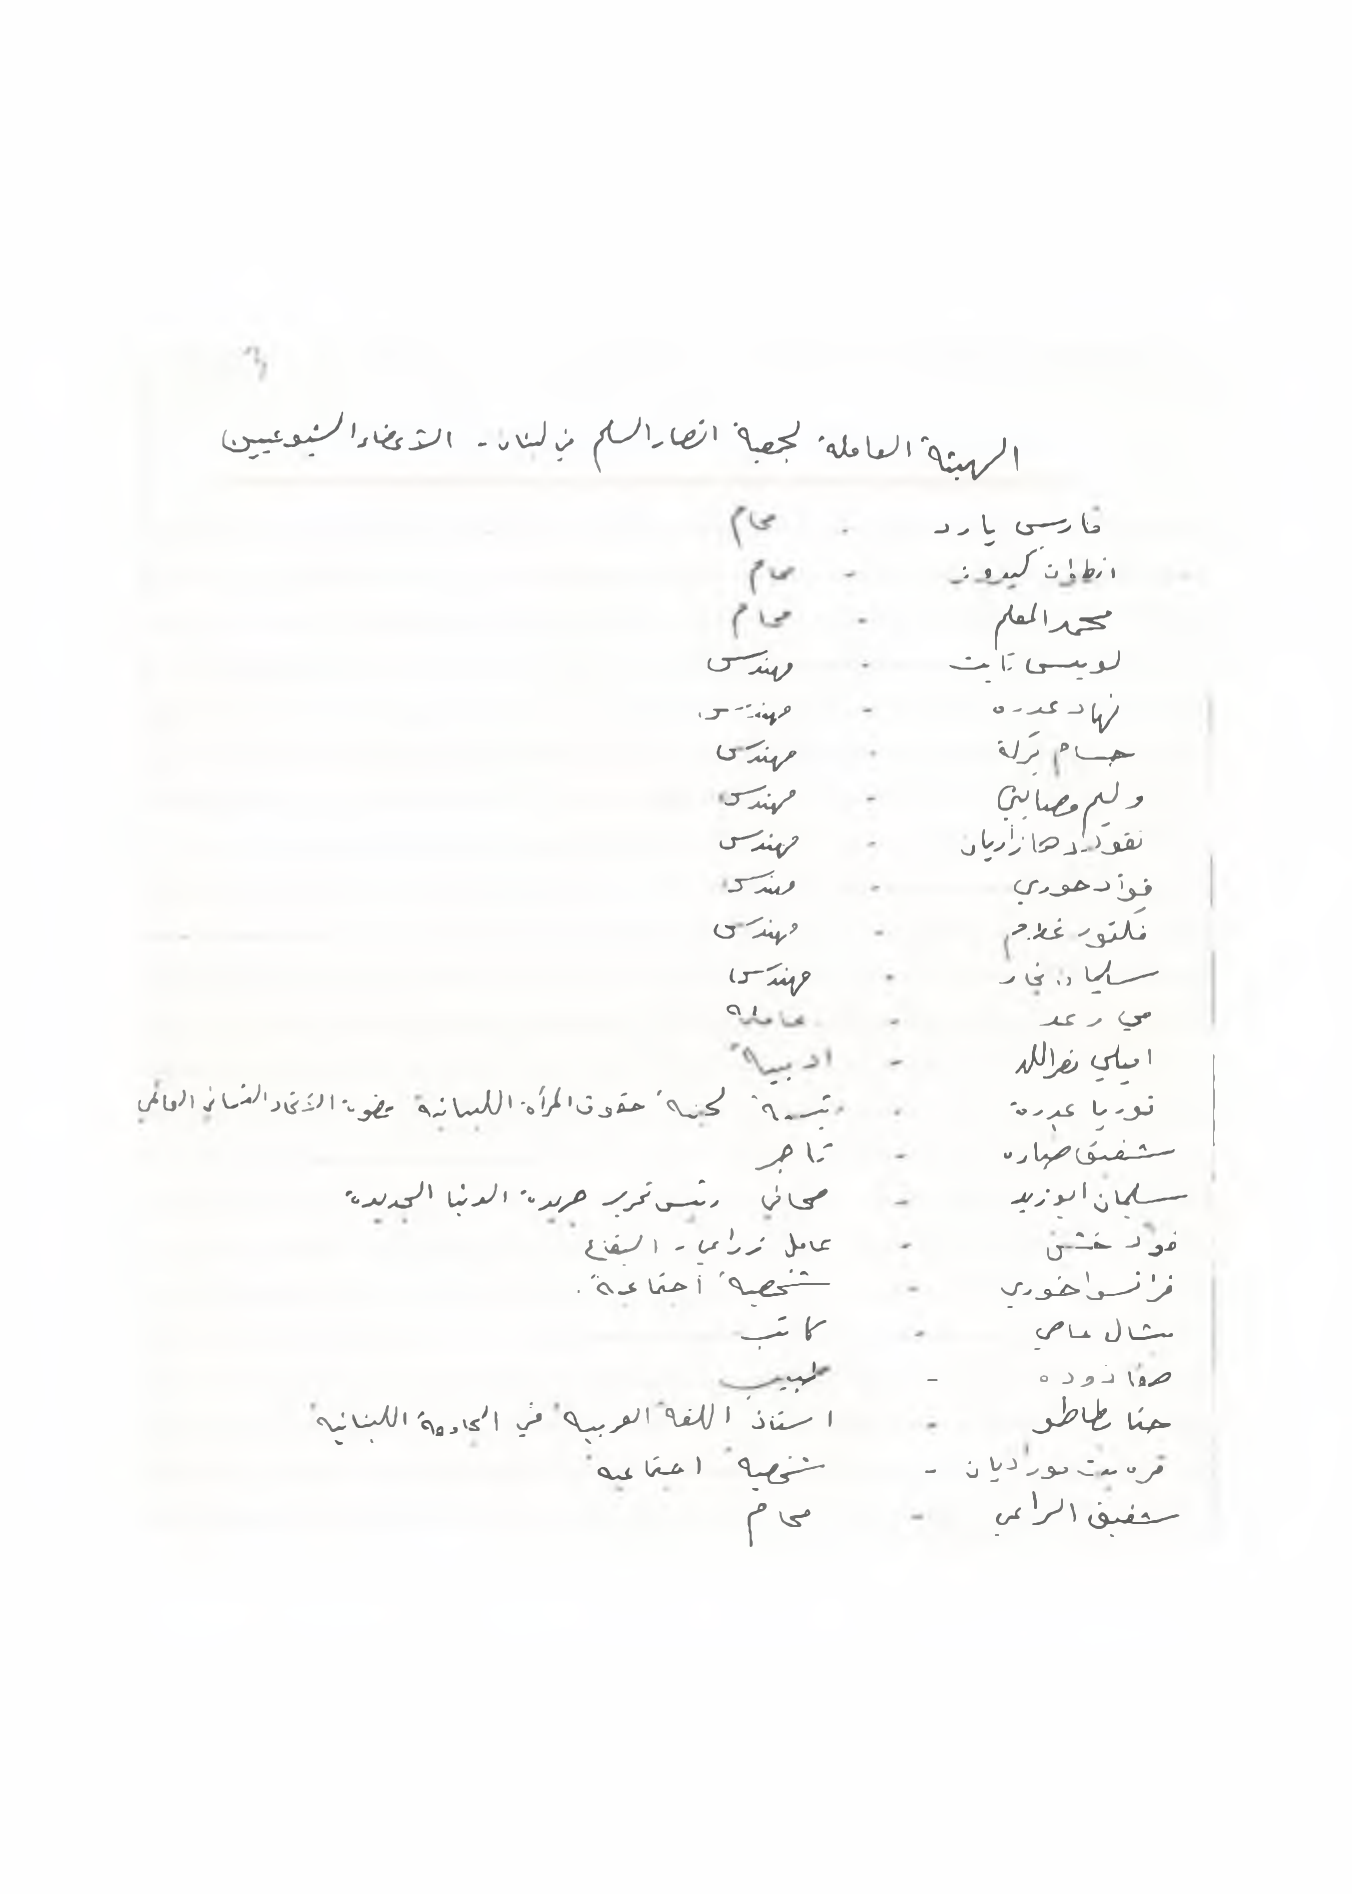 الهيئة العاملة لجمعية انصار السلم في لبنان - الأعضاء الشيوعيين
فارس يارد - محام
انطوان - محام
محمد المعلم - محام
لويس تابت - مهندس
نهاد عدره - مهندس
حسام بركة - مهندس
وليم مصابني - مهندس
هازاريان - مهندس
فؤاد حوري - مهندس
فكتور غلام - مهندس
سليمان نجار - مهندس
مي رعد - عاملة
اميلي نصرالله - اديبة
ثوريا عدرة - رئيسة لجنة حقوق المرأة اللبنانية عضوة الاتحاد النسائي العالمي
شفيق صباره - تاجر
سليمان ابو زيد - صحافي رئيس تحرير جريدة الدنيا الجديدة
فؤاد خشن - عامل زراعي - البقاع
فرانسوا خوري - شخصية اجتماعية.
ميشال عاصي - كاتب
- طبيب
حنا طاطو - استاذ اللغة العربية في الجامعة اللبنانية
قره بيت موراديان - شخصية اجتماعية
شفيق الراعي - محام